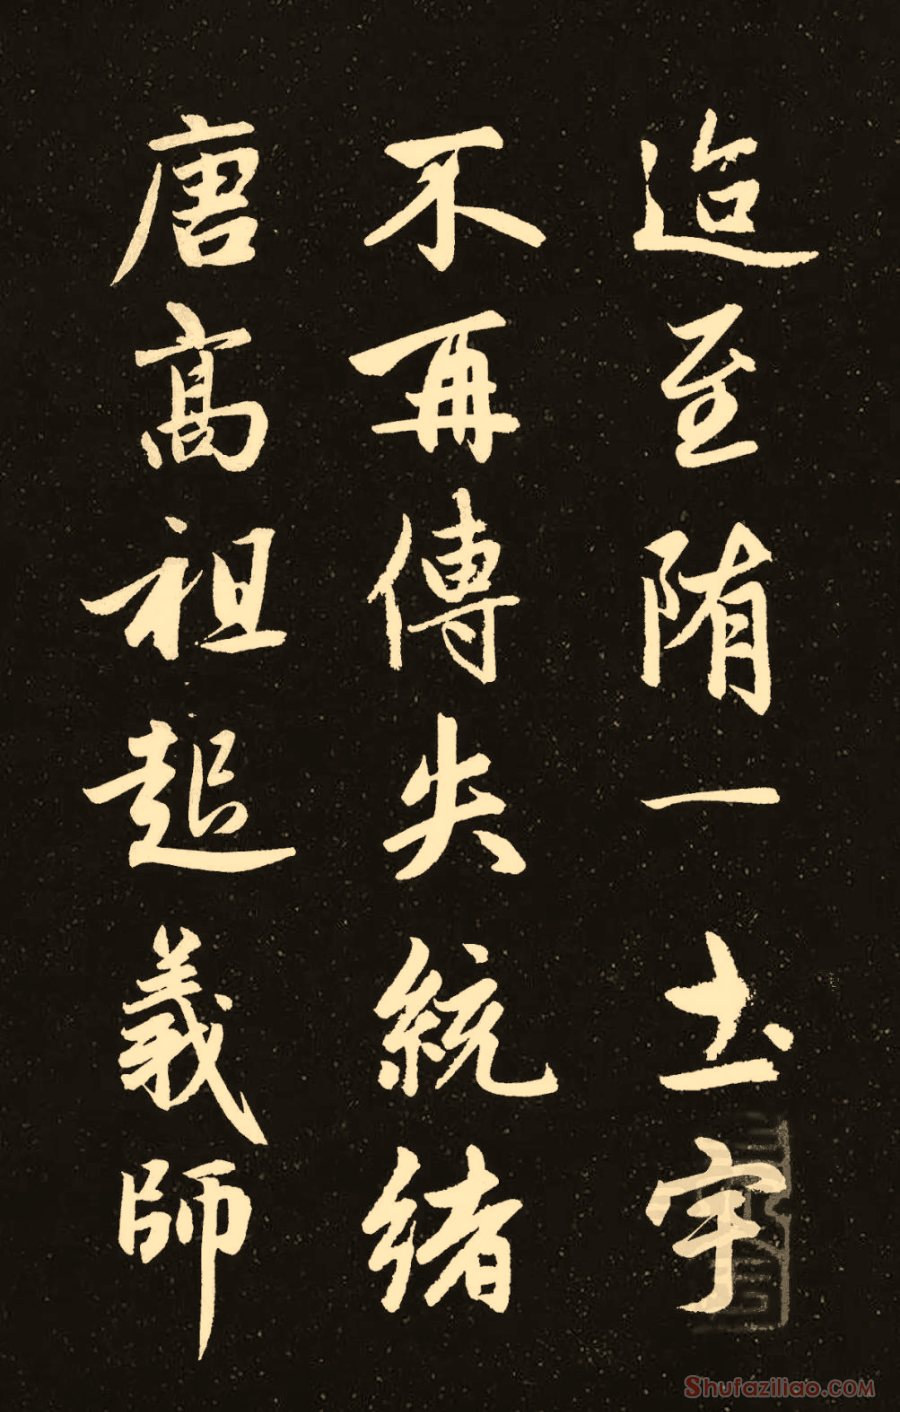 迨至隋一土宇
不再傳失統緒
唐高祖起義師
Shufaziliao.COM